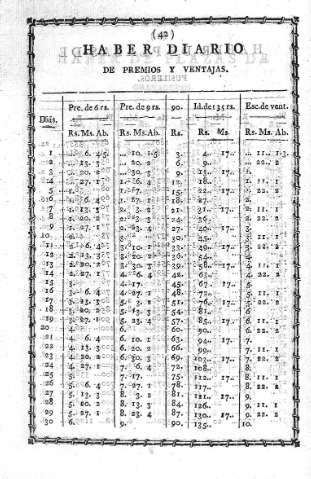 (42)
HABER DIARIO
DE PREMIOS Y VENTAJAS.
Pre. de 6 rs. Pre. de 9 rs. 90.. Id. de 135 rs. Esc. de vent.
Dias. Rs. Ms. Ab. Rs. Ms. Ab. Rs. Rs. Ms. Rs. Ms. Ab.
1 ... 6. 4.5. ... 10. 1.5 3. 4.. 17.. ... 11. 1.3
2 ... 13. 3 ... 20. 2 6. 9.. ... 22. 2
3 ... 20. 2 ... 30. 3 9. 13.. 17.. 1.
4 ... 27. 1 1. 6. 4 12. 18.. 1. 11. 1
5 1. 1. 17. 15. 22.. 17.. 1. 22. 2
6 1. 6. 4 1. 27. 1 18. 27.. 2.
7 1. 13. 3 2. 3. 2 21. 31.. 17.. 2. 11. 1
8 1. 20. 2 2. 13. 3 24. 36.. 2. 22. 2
9 1. 27. 1 2. 23. 4 27. 40.. 17.. 3.
10 2. 3. 30. 45.. 3. 11. 1
11 2. 6. 4 3. 10. 1 33. 49.. 17.. 3. 22. 2
12 2. 13. 3 3. 20. 2 36. 54.. 4.
13 2. 20. 2 3. 30. 3 39. 58.. 17.. 4. 11. 1
14 2. 27. 1 4. 6. 4 42. 63.. 4. 22. 2
15 3. 4. 17. 45. 67.. 17.. 5.
16 3. 6. 4 4. 27. 1 48. 72.. 5. 11. 1
17 3. 13. 3 5. 3. 2 51. 76.. 17.. 5. 22. 2
18 3. 20. 2 5. 13. 3 54. 81.. 6.
19 3. 27. 1 5. 23. 4 57. 85.. 17.. 6. 11. 1
20 4. 6. 60. 90.. 6. 22. 2
21 4. 6. 4 6. 10. 1 63. 94.. 17.. 7.
22 4. 13. 3 6. 20. 2 66. 99.. 7. 11. 1
23 4. 20. 2 6. 30. 3 69. 103.. 17.. 7. 22. 2
24 4. 27. 1 7. 6. 4 72. 108.. 8.
25 5. 7. 17. 75. 112.. 17.. 8. 11. 1
26 5. 6. 4 7. 27. 1 78. 117.. 8. 22. 2
27 5. 13. 3 8. 3. 2 81. 121.. 17.. 9.
28 5. 20. 2 8. 13. 3 84. 126.. 9. 11. 1
29 5. 27. 1 8. 23. 4 87. 130.. 17.. 9. 22. 2
30 6. 9. 90. 135.. 10.